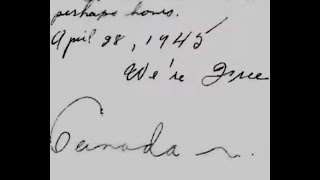 perhaps hours.
April 28, 1945
We're Free